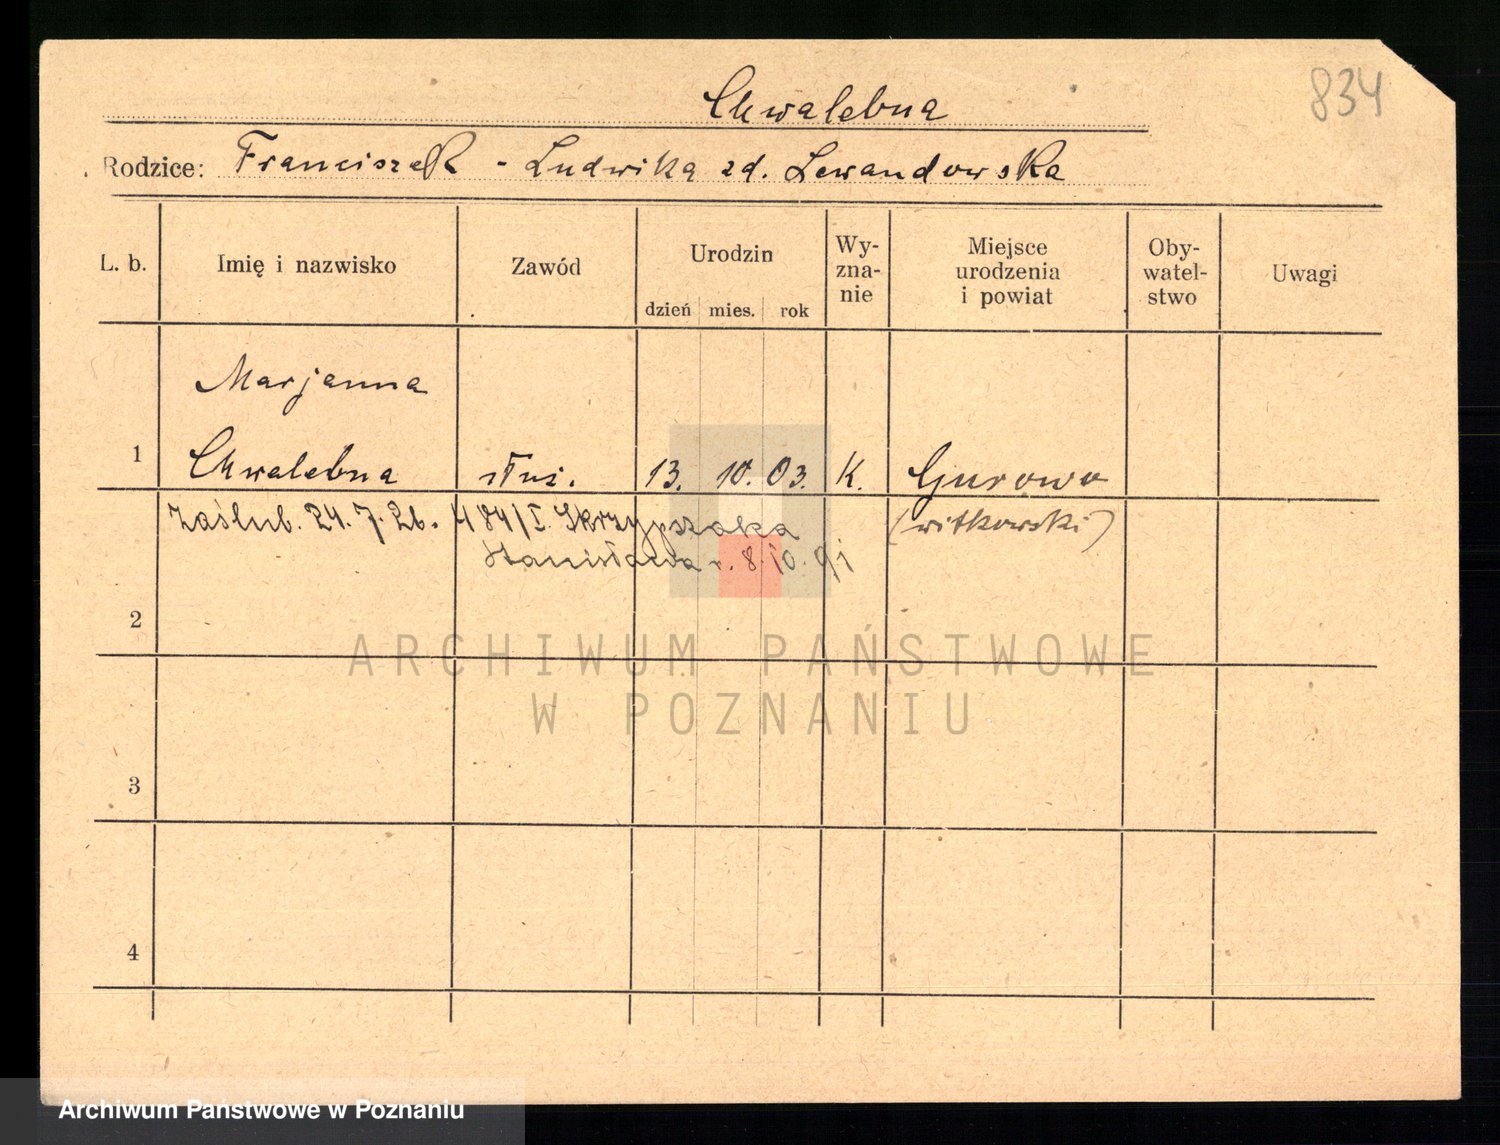 834
Chwalebna
Rodzice: Franciszek - Ludwika zd. Lewandowska
L. b. Imię i nazwisko Zawód Urodzin dzień mies. rok Wy-zna-nie Miejsce urodzenia i powiat Oby-watel-stwo Uwagi
Marjanna
1 Chwalebna służ. 13. 10. 03. K. Gurowo
zaślub. 24. 7. 26. 484/I. Skrzypszaka (witkowski)
Stanisława r. 8.10.91
2
ARCHIWUM PAŃSTWOWE
W POZNANIU
3
4
Archiwum Państwowe w Poznaniu